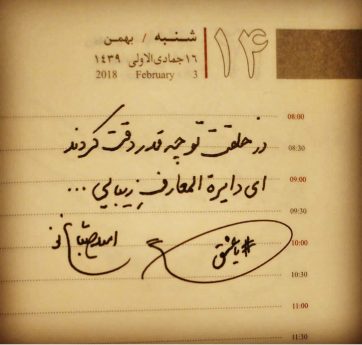 ۱۴
شنبه / بهمن
۱۶ جمادی‌الاولی ۱۴۳۹
2018 February 3
08:00
در خلقت تو چه قدر دقت کردند
08:30
ای دایرة المعارفِ زیبایی ...
09:00
09:30
10:00
#یاعشق
10:30
11:00
11:30